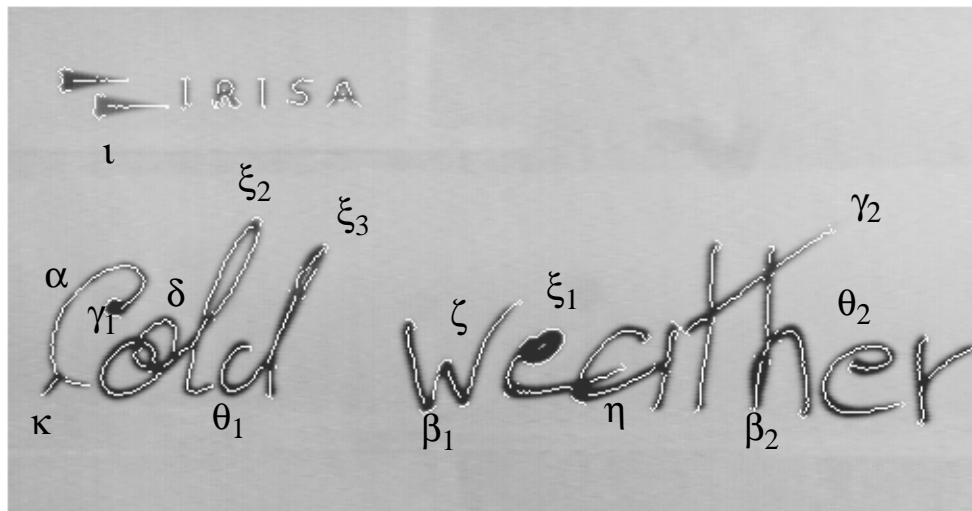 IRISA
ι
ξ2
ξ3
γ2
α γ1 δ ζ ξ1 θ2
Cold weather
κ θ1 β1 η β2